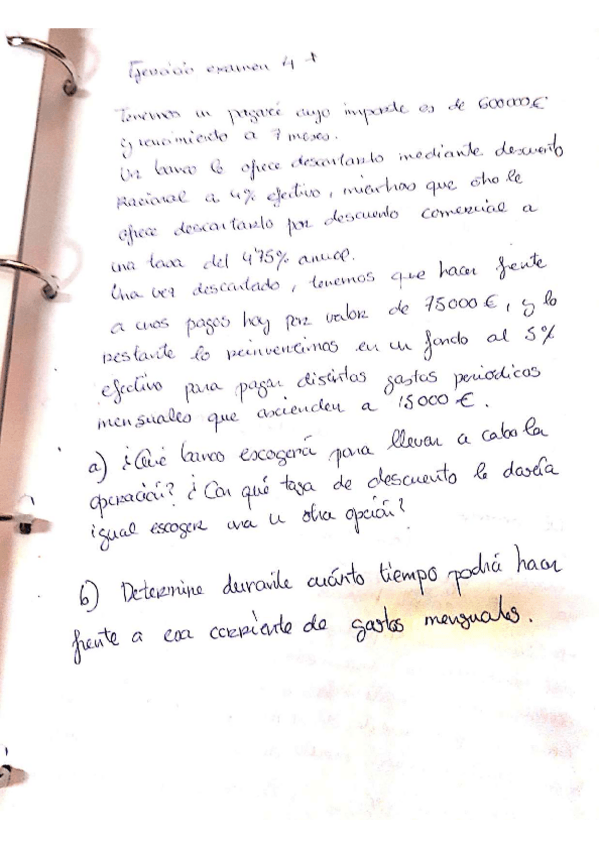 Ejercicio examen 4 +
Tenemos un pagaré cuyo importe es de 600000€
y vencimiento a 7 meses.
Un banco le ofrece descontarlo mediante descuento
Racional a 4% efectivo, mientras que otro le
ofrece descontarlo por descuento comercial a
una tasa del 4'75% anual.
Una vez descontado, tenemos que hacer frente
a unos pagos hoy por valor de 75000€, y lo
restante lo reinvertimos en un fondo al 5%
efectivo para pagar distintos gastos periódicos
mensuales que ascienden a 15000€.
a) ¿Qué banco escogerá para llevar a cabo la
operación? ¿Con qué tasa de descuento le daría
igual escoger una u otra opción?
b) Determine durante cuánto tiempo podrá hacer
frente a esa corriente de gastos mensuales.